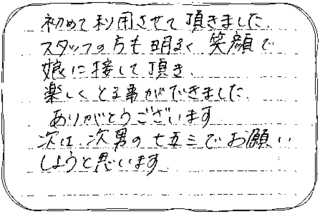 初めて利用させて頂きました
スタッフの方も明るく笑顔で
娘に接して頂き、
楽しくとる事ができました
ありがとうございます
次は、次男の七五三でお願い
しようと思います